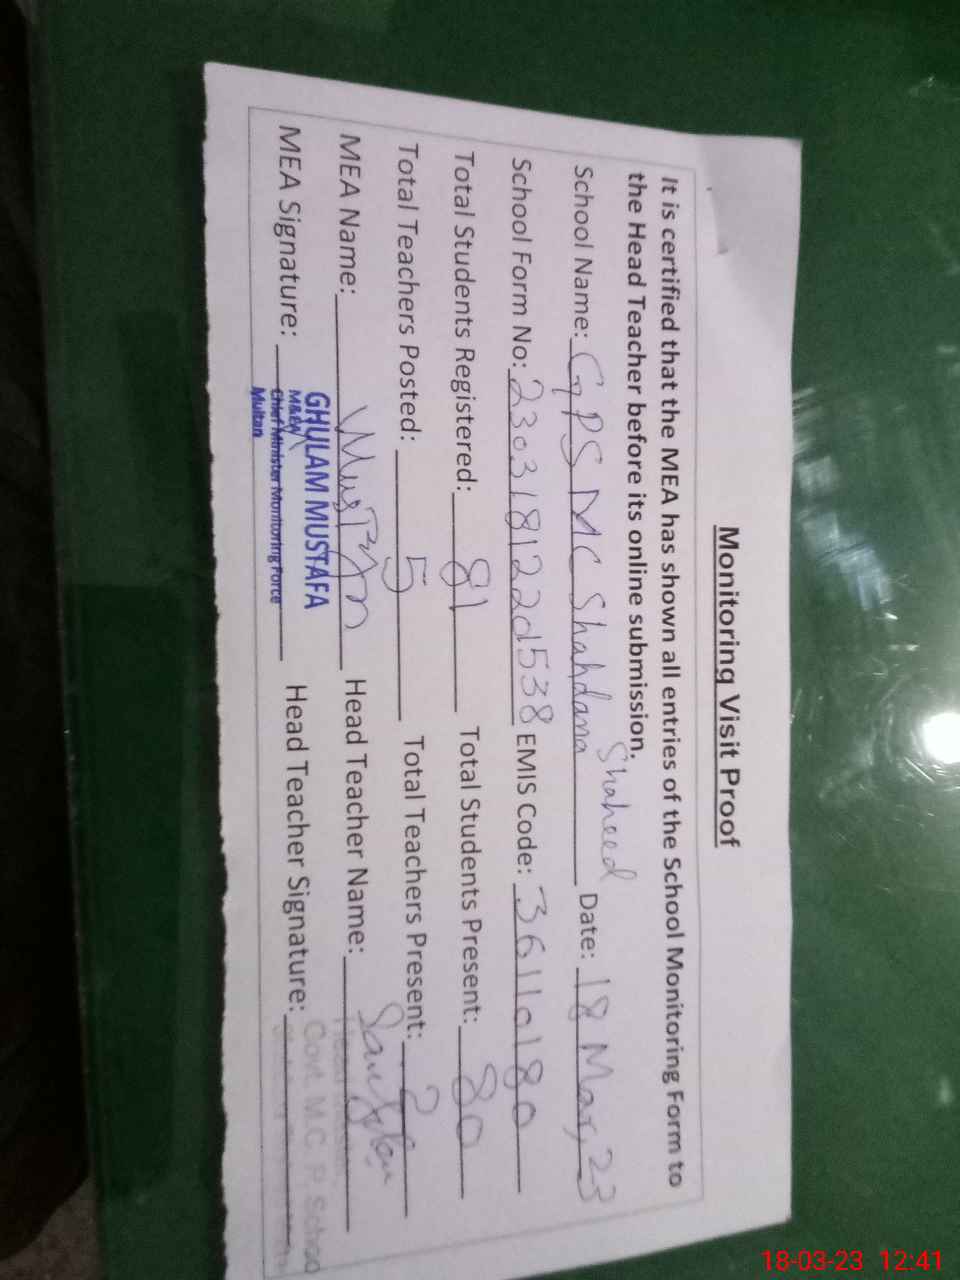 Monitoring Visit Proof
It is certified that the MEA has shown all entries of the School Monitoring Form to
the Head Teacher before its online submission.
School Name: GPS MC Shahdana Shaheed Date: 18 Mar, 23
School Form No: 23031812 2d538 EMIS Code: 36110180
Total Students Registered: 81 Total Students Present: 80
Total Teachers Posted: 5 Total Teachers Present: 2
MEA Name: Head Teacher Name:
MEA Signature: Head Teacher Signature:
GHULAM MUSTAFA
M&EA
Chief Minister Monitoring Force
Multan
Govt. M.C. P. School
18-03-23 12:41